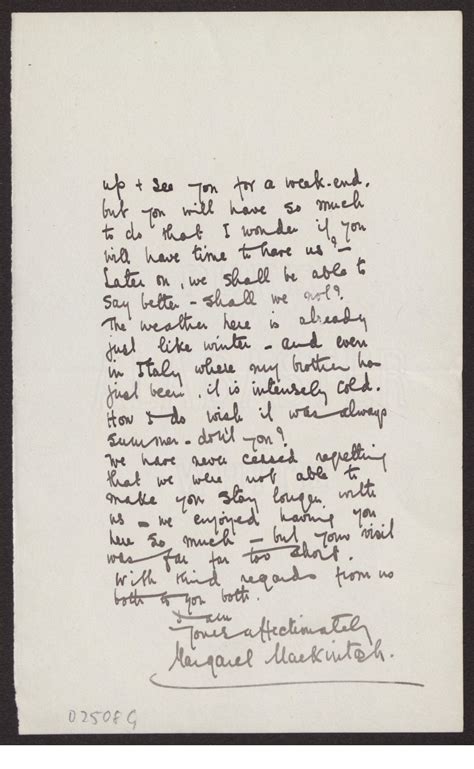 up + see you for a week-end.
but you will have so much
to do that I wonder if you
will have time to have us? -
Later on, we shall be able to
say better - shall we not?
The weather here is already
just like winter - and even
in Italy where my brother has
just been, it is intensely cold.
How I do wish it was always
summer - don't you?
We have never ceased regretting
that we were not able to
make you stay longer with
us - we enjoyed having you
here so much - but your visit
was far far too short.
With kind regards from us
both to you both.
I am
Yours affectionately
Margaret Mackintosh.
02508G